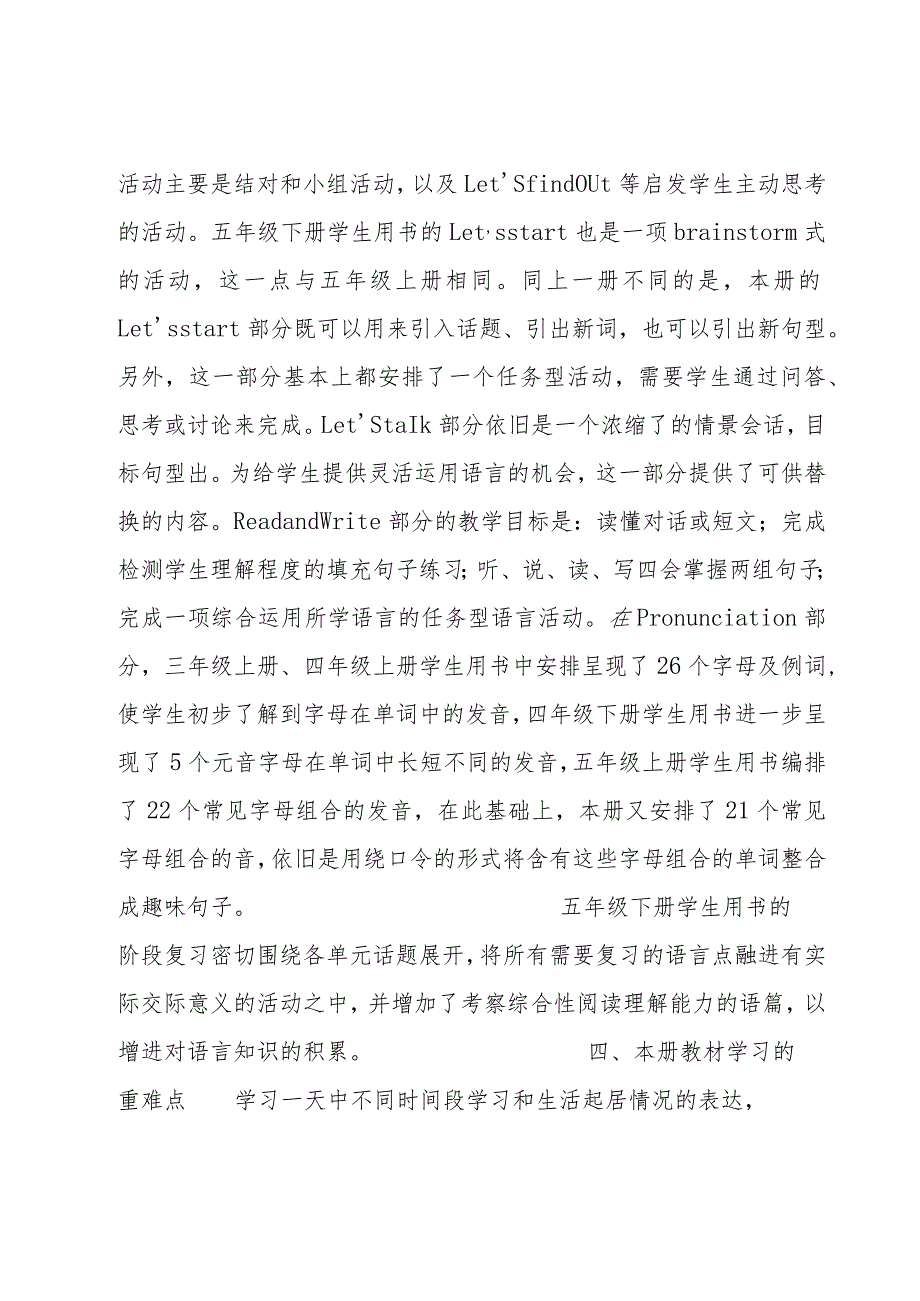 活动主要是结对和小组活动，以及Let'SfindOUt等启发学生主动思考
的活动。五年级下册学生用书的Let,sstart也是一项brainstorm式
的活动，这一点与五年级上册相同。同上一册不同的是，本册的
Let'sstart部分既可以用来引入话题、引出新词，也可以引出新句型。
另外，这一部分基本上都安排了一个任务型活动，需要学生通过问答、
思考或讨论来完成。Let'StaIk部分依旧是一个浓缩了的情景会话，目
标句型出。为给学生提供灵活运用语言的机会，这一部分提供了可供替
换的内容。ReadandWrite部分的教学目标是：读懂对话或短文；完成
检测学生理解程度的填充句子练习；听、说、读、写四会掌握两组句子；
完成一项综合运用所学语言的任务型语言活动。在Pronunciation部
分，三年级上册、四年级上册学生用书中安排呈现了26个字母及例词，
使学生初步了解到字母在单词中的发音，四年级下册学生用书进一步呈
现了5个元音字母在单词中长短不同的发音，五年级上册学生用书编排
了22个常见字母组合的发音，在此基础上，本册又安排了21个常见
字母组合的音，依旧是用绕口令的形式将含有这些字母组合的单词整合
成趣味句子。 五年级下册学生用书的
阶段复习密切围绕各单元话题展开，将所有需要复习的语言点融进有实
际交际意义的活动之中，并增加了考察综合性阅读理解能力的语篇，以
增进对语言知识的积累。 四、本册教材学习的
重难点 学习一天中不同时间段学习和生活起居情况的表达，